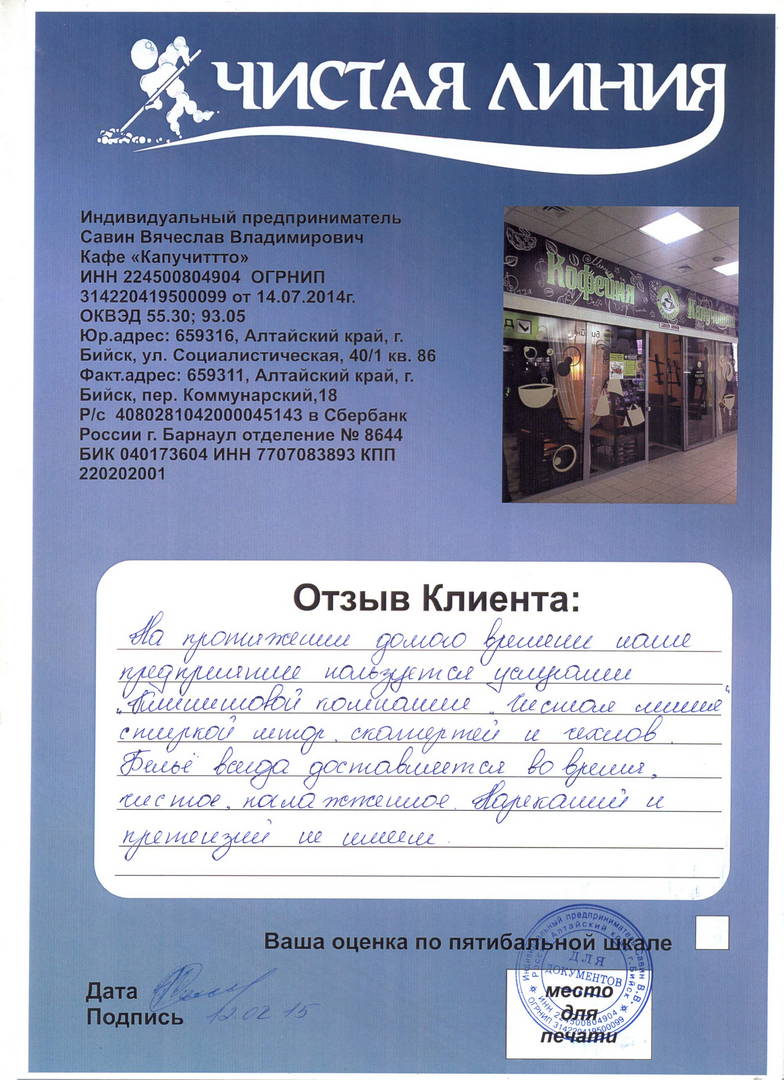 ЧИСТАЯ ЛИНИЯ
Индивидуальный предприниматель
Савин Вячеслав Владимирович
Кафе «Капучиттто»
ИНН 224500804904 ОГРНИП
314220419500099 от 14.07.2014г.
ОКВЭД 55.30; 93.05
Юр.адрес: 659316, Алтайский край, г.
Бийск, ул. Социалистическая, 40/1 кв. 86
Факт.адрес: 659311, Алтайский край, г.
Бийск, пер. Коммунарский,18
Р/с 4080281042000045143 в Сбербанк
России г. Барнаул отделение № 8644
БИК 040173604 ИНН 7707083893 КПП
220202001
Кофейня
Отзыв Клиента:
На протяжении домого времени наше
предприятие пользуется услугами
"Клининговой компании "Чистая линия"
стиркой штор, скатертей и чехлов.
Бельё всегда доставляется во время,
чистое, налаженное. Нареканий и
претензий не имеем.
Ваша оценка по пятибальной шкале
Дата
Подпись 12.02.15
Индивидуальный предприниматель Савин В.В.
Россия Алтайский край г.Бийск
ДЛЯ
ДОКУМЕНТОВ
ИНН 224500804904
ОГРНИП 314220419500099
место
для
печати